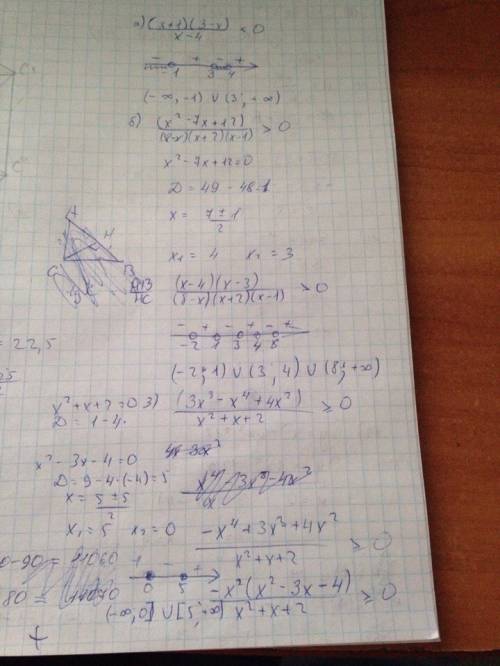 а) (x+1)(3-x) / x-4 < 0
- + - +
-1 3 4
(-∞, -1) ∪ (3; +∞)
б) (x² - 7x + 12) / (8-x)(x+2)(x-1) > 0
x² - 7x + 12 = 0
D = 49 - 48 = 1
x = 7 ± 1 / 2
x₁ = 4 x₂ = 3
(x-4)(x-3) / (8-x)(x+2)(x-1) > 0
- + - + - +
-2 1 3 4 8
(-2; 1) ∪ (3; 4) ∪ (8; +∞)
= 22,5
x² + x + 2 = 0
D = 1 - 4.
3) (3x³ - x⁴ + 4x²) / x² + x + 2 ≥ 0
x² - 3x - 4 = 0
D = 9 - 4·(-4) = 5
x = 5 ± 5 / 2
x₁ = 5 x₂ = 0
-x⁴ + 3x³ + 4x² / x² + x + 2 ≥ 0
+ - +
0 5
-x²(x² - 3x - 4) / x² + x + 2 ≥ 0
(-∞, 0] ∪ [5; +∞)